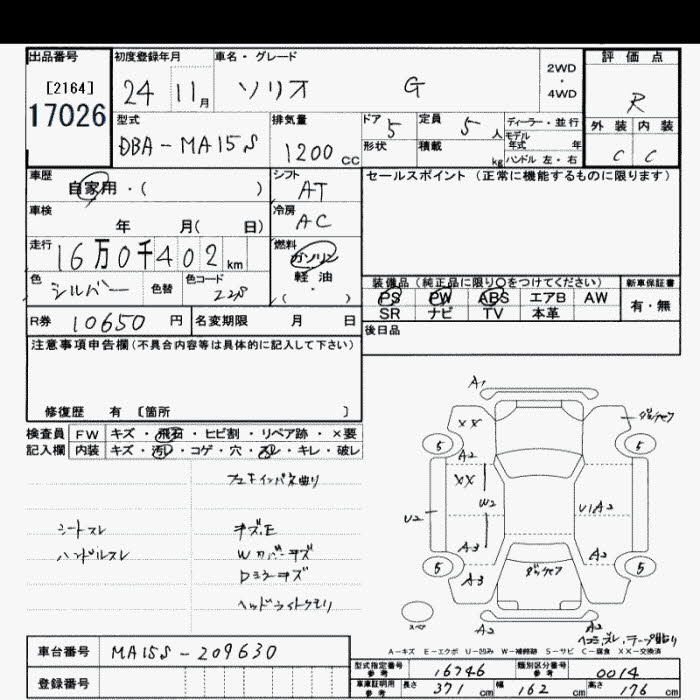 出品番号 初度登録年月 車名・グレード 評価点
[2164] 24 11月 ソリオ G 2WD・4WD R
17026 型式 排気量 ドア 定員 ディーラー・並行
DBA-MA15S 1200cc 5 5人 モデル年式 年
形状 積載 kg ハンドル 左・右
外装 内装
C C
車歴 シフト セールスポイント (正常に機能するものに限ります)
自家用・( ) AT
車検 冷房
年 月( 日) AC
走行 燃料
16万0千402km ガソリン・軽油・( )
色 色替 色コード
シルバー Z2S
装備品 (純正品に限り○をつけてください) 新車保証書
PS PW ABS エアB AW 有・無
SR ナビ TV 本革
R券 10650円 名変期限 月 日 後日品
注意事項申告欄(不具合内容等は具体的に記入して下さい)
修復歴 有 〔箇所 〕
検査員 FW キズ・飛石・ヒビ割・リペア跡・×要
記入欄 内装 キズ・汚れ・コゲ・穴・スレ・キレ・破レ
シートスレ キズ.E
ハンドルスレ Wカバーキズ
Dミラーキズ
ヘッドライトクモリ
A1
XX
5 5
A2
XX
W2
U2 U1A2
A3 A2
5 5
A3
スペア
A2 A2
A-キズ E-エクボ U-凹み W-補修跡 S-サビ C-腐食 XX-交換済
車台番号 MA15S-209630
型式指定番号 参考 16746 類別区分番号 参考 0014
登録番号
車庫証明用 参考 長さ 371cm 幅 162cm 高さ 176cm